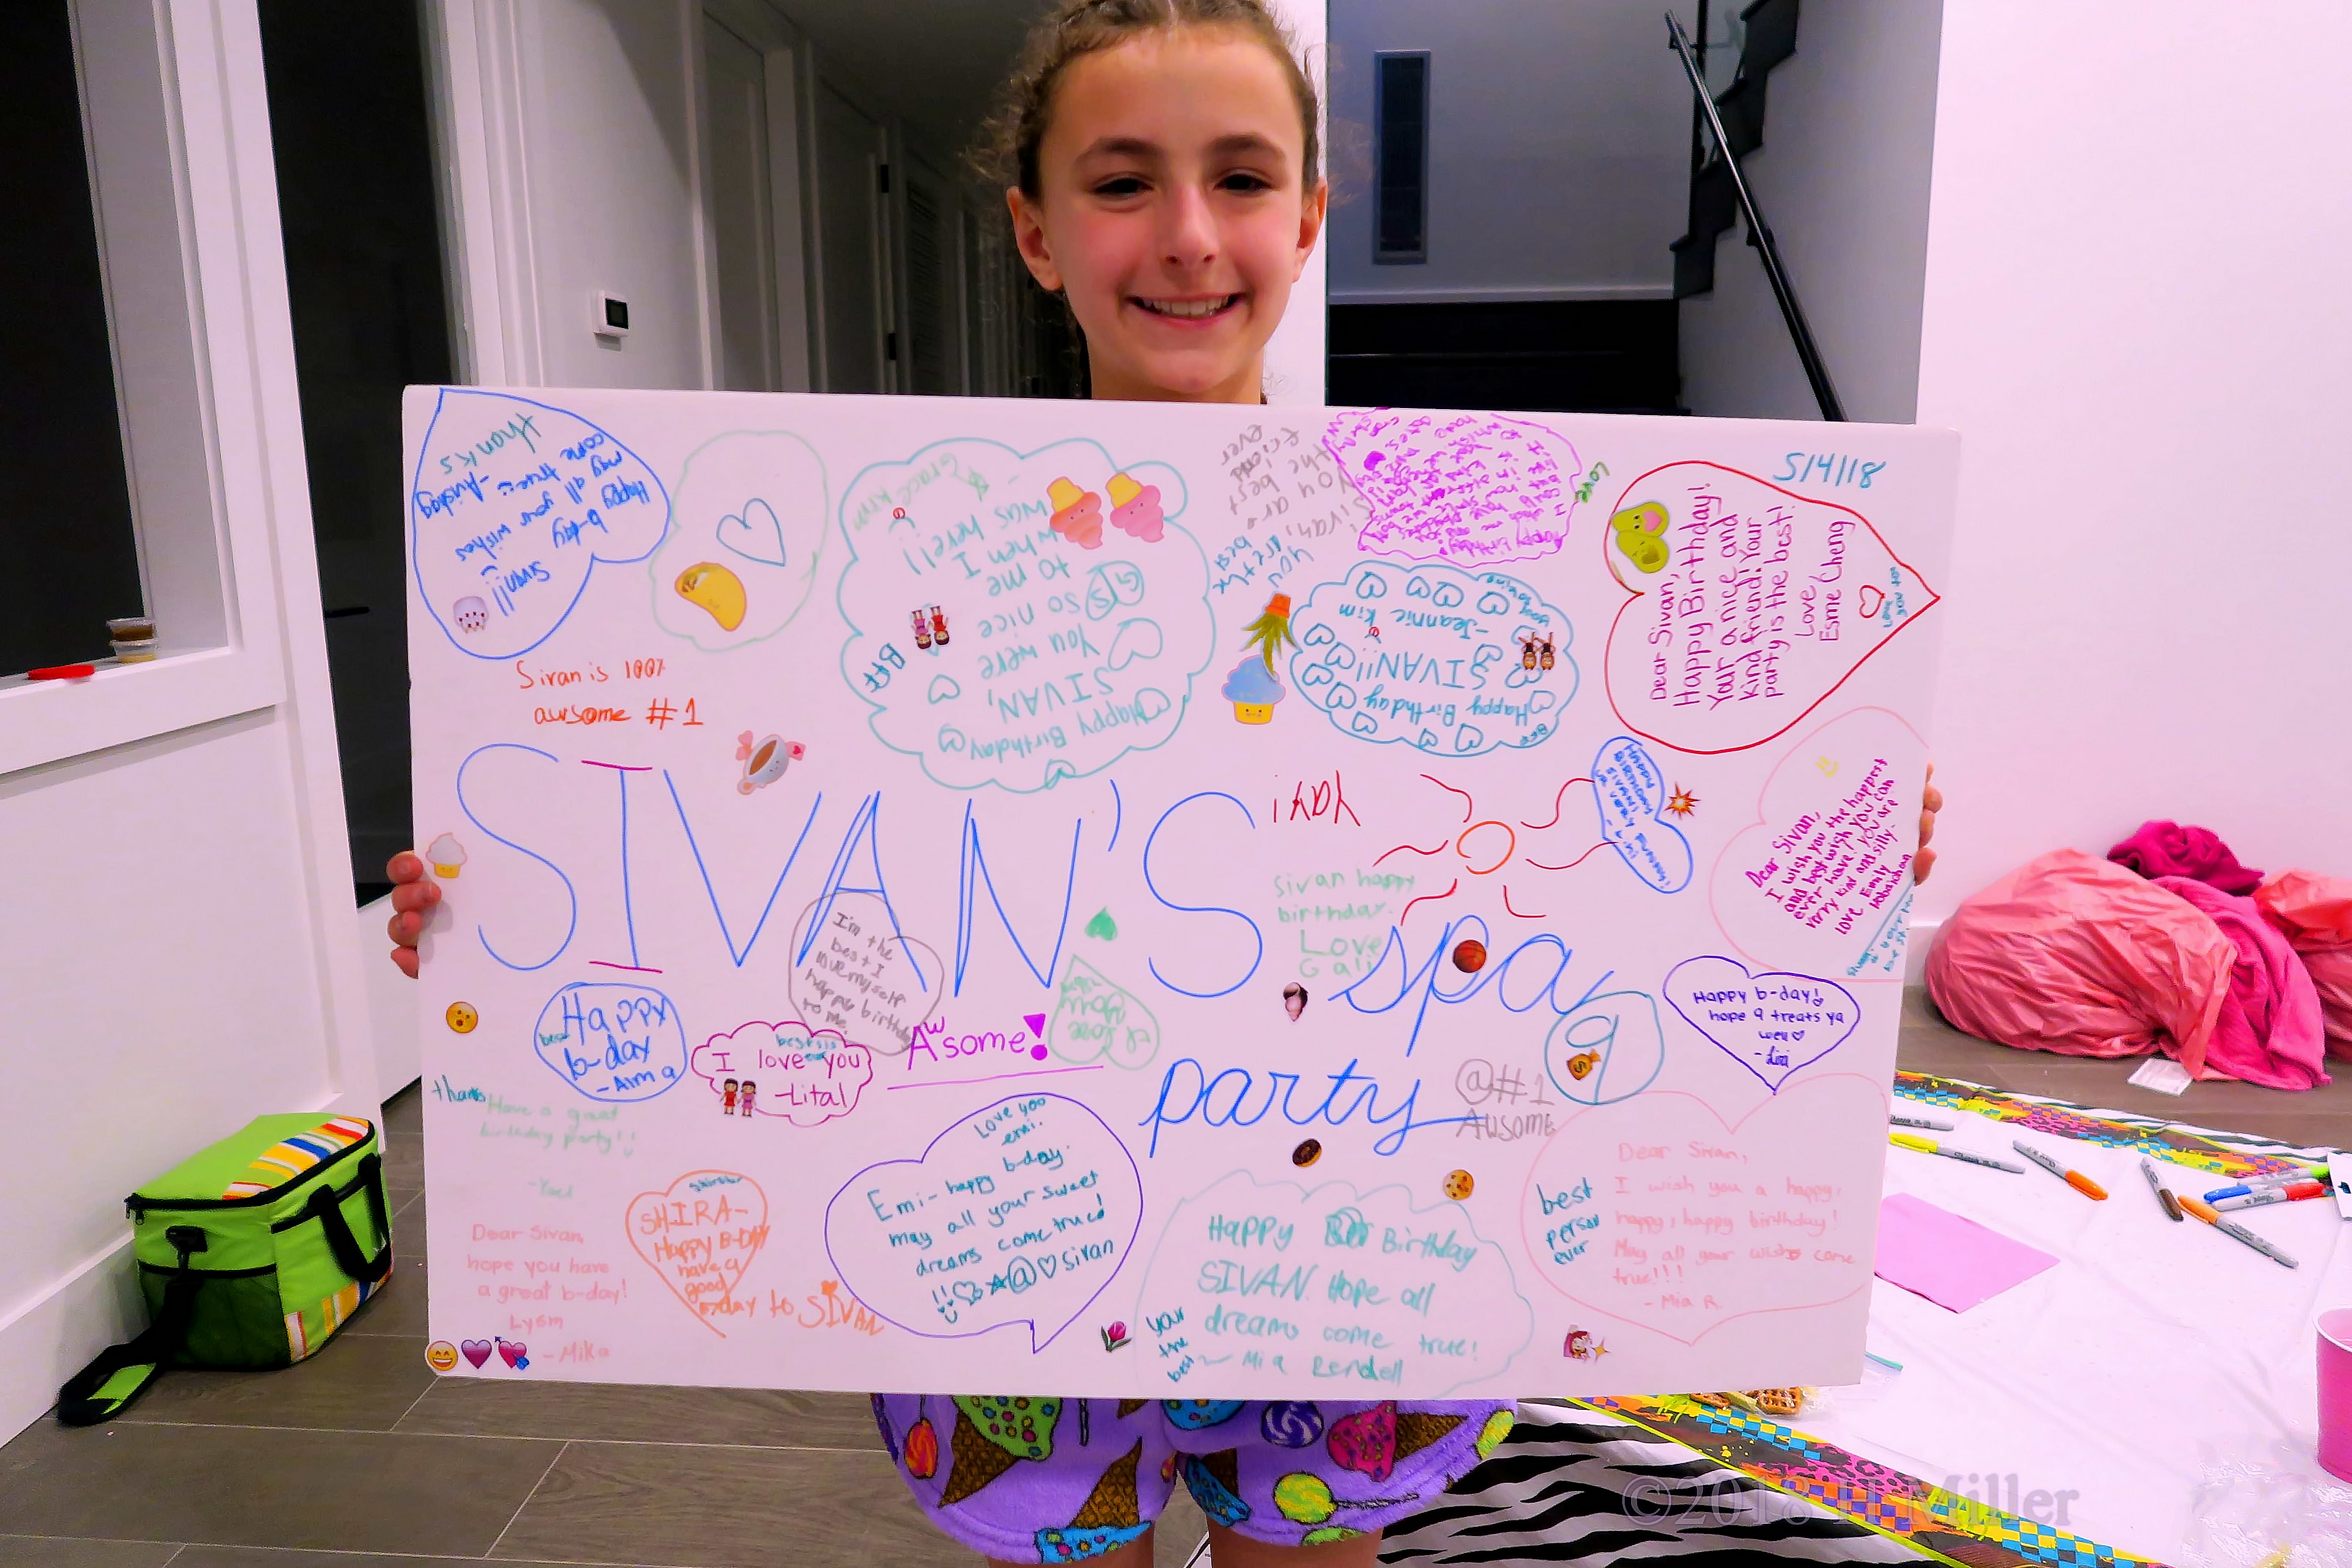 Sivan!!
Happy b-day
may all your wishes
come true
thanks
Sivan is 100%
awsome #1
Happy Birthday
SIVAN,
You were
so nice
to me
when I
was here!!
- Grace Kim
GS
BFF
Sivan,
You are
the best
friend
ever
you
are the
best
love
Happy Birthday
SIVAN!!
-Jeannie Kim
BFF
5/4/18
Dear Sivan,
Happy Birthday!
Your a nice and
kind friend! Your
party is the best!
Love,
Esme Cheng
love you too
Yay!
Dear Sivan,
I wish you the happest
and best wish you can
ever have! You are
very kind and silly.
love Emily
SIVAN'S
spa
party
9
I'm the
best I
love myself
happy birthday
to me.
sivan happy
birthday.
Love
Gali
I love
you
Happy
b-day
best
I love you
-Lital
Aw some!
Happy b-day!
hope 9 treats ya
well
@#1
Awsome
thanks
Have a great
birthday party!!
-Yael
Dear Sivan,
hope you have
a great b-day!
Lysm
-Mika
SHIRA-
Happy B-DAY
have a
good
b-day to SIVAN
Love you
emi.
Emi- happy b-day.
may all your sweet
dreams come true!
!! @ sivan
Happy Birthday
SIVAN. Hope all
dreams come true!
- Mia Rendell
your
the
best
best
person
ever
Dear Sivan,
I wish you a happy,
happy, happy birthday!
May all your wishs come
true!!!
- Mia R.
©2018 H Miller